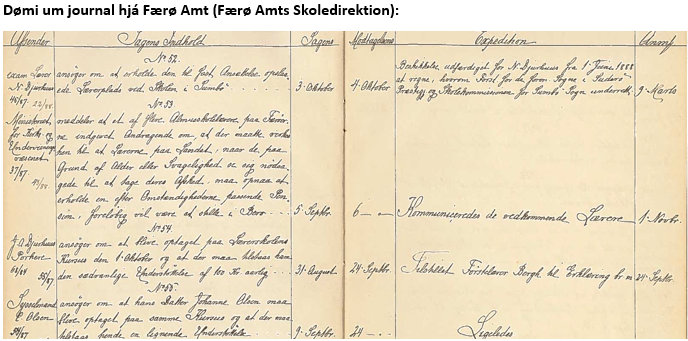 Dømi um journal hjá Færø Amt (Færø Amts Skoledirektion):
Afsender Sagens Indhold Sagens Modtagelses Expedition Anmk
No 52.
exam. Lærer ansøger om at erholde den til fast Ansættelse opslaa-
N. Djurhuus ede Lærerplads ved Skolen i Sumbø 3. Oktober 4. Oktober
Beskikkelse udfærdiget for N. Djurhuus fra 1. Juni 1888
at regne, hvorom Provst for de foren. Sogne i Suderø
Præstegj. og Skolekommissionen for Sumbø Sogn underrett. 9. Marts
No 53
Ministeriet meddeler at et af flere Almueskolelærere paa Færø-
for Kirke- og ne indgivet Andragende om, at der maatte
Undervisnings- til at Lærerne paa Landet, naar de paa
væsenet Grund af Alder eller Svagelighed se sig nødsa-
37/87 gede til at tage deres Afsked, maa opnaa at
erholde en efter Omstændighederne passende Pen-
sion, foreløbig vil være at stille i Bero 5. Septbr. 6 — „ — Kommuniceredes de vedkommende Lærere 1. Novbr.
No 54
Djurhuus ansøger om at blive optaget paa Lærerskolens
Pørkere Kursus den 1. Oktober og at der maa tilstaas ham
den sædvanlige Understøttelse af 100 Kr. aarlig 31. August 24. Septbr. Tilstillet Førstelærer Bergh til Erklæring 24. Septbr.
No 55.
Sysselmand ansøger om at hans Datter Johanne Olsen maa
E. Olsen blive optaget paa samme Kursus og at der maa
tilstaas hende en lignende Understøttelse 9. Septbr. 24 — „ — Ligeledes